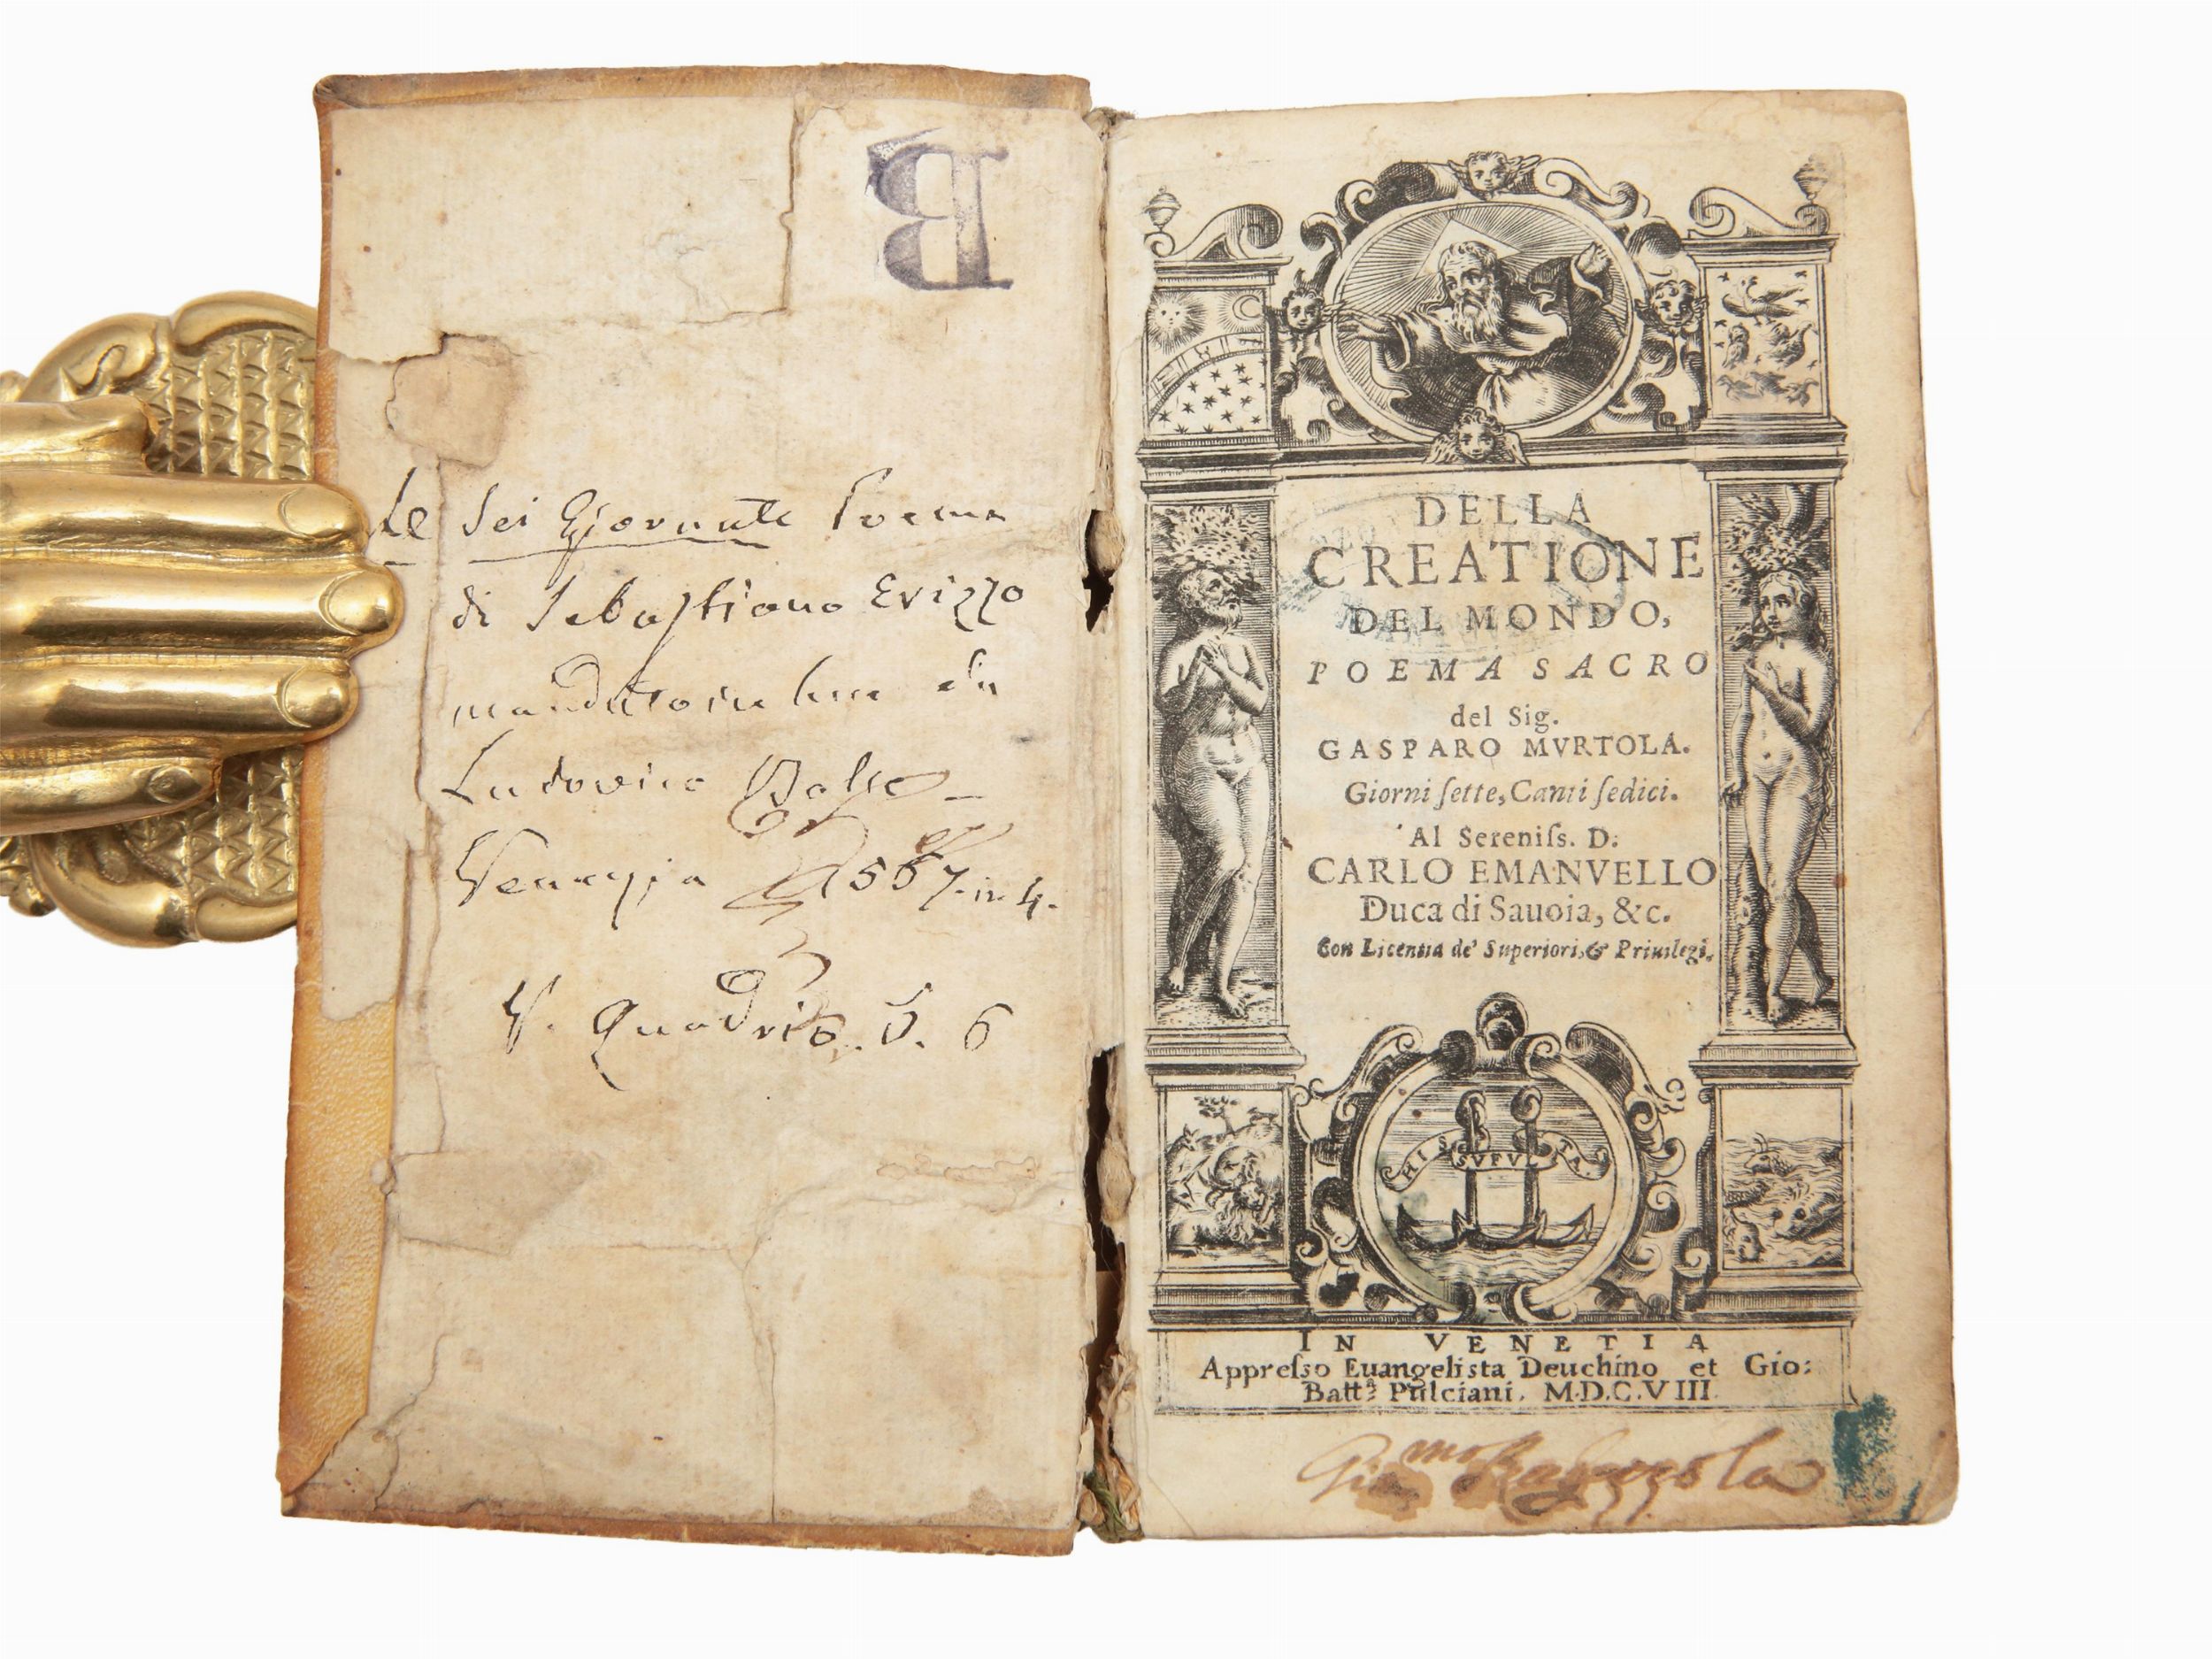 B
Le Sei Giornate Poema
di Sebastiano Erizzo
mandato in luce da
Ludovico Dolce
Venezia 1567. in 4.
V. Quadrio. 6
DELLA
CREATIONE
DEL MONDO,
POEMA SACRO
del Sig.
GASPARO MVRTOLA.
Giorni ſette, Canti ſedici.
Al Sereniſs. D.
CARLO EMANVELLO
Duca di Sauoia, &c.
Con Licentia de' Superiori, & Priuilegi.
HIS SVFVLTA
IN VENETIA
Appreſso Euangelista Deuchino et Gio:
Batt.ᵃ Pulciani. M.D.C.VIII